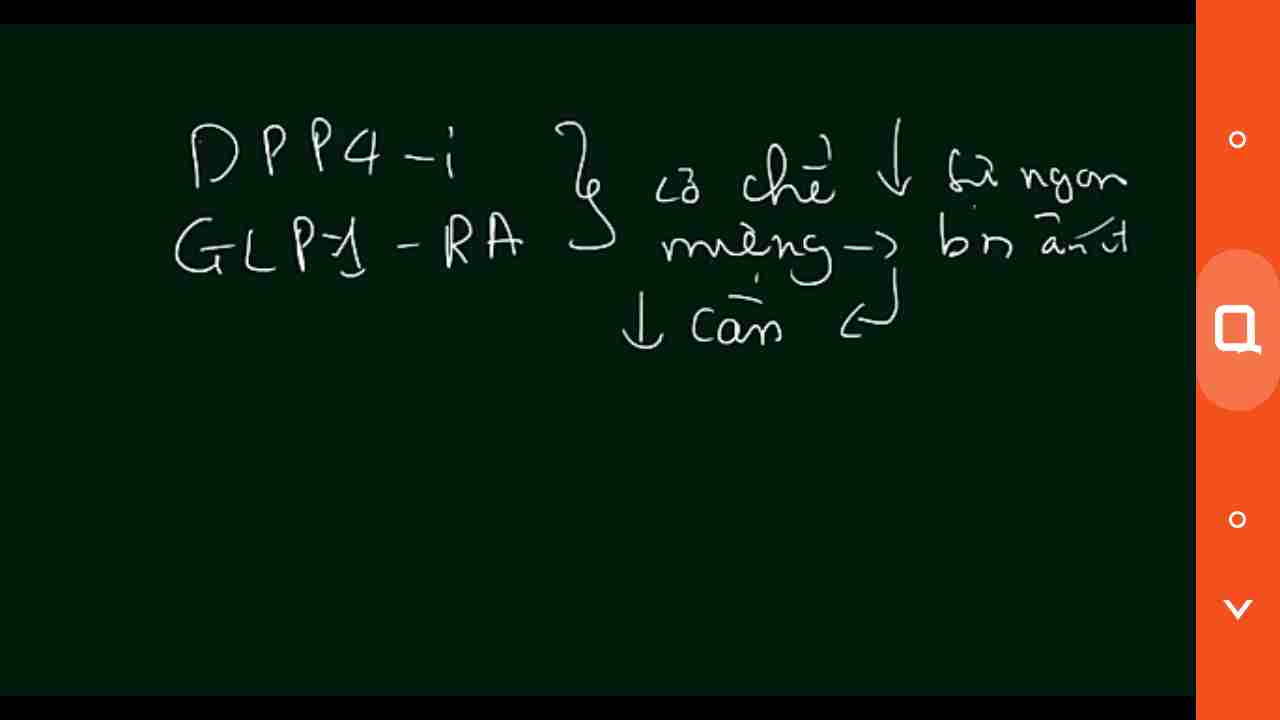 DPP4-i
GLP1-RA
cơ chế ↓ sự ngon
miệng → bn ăn ít
↓ cân